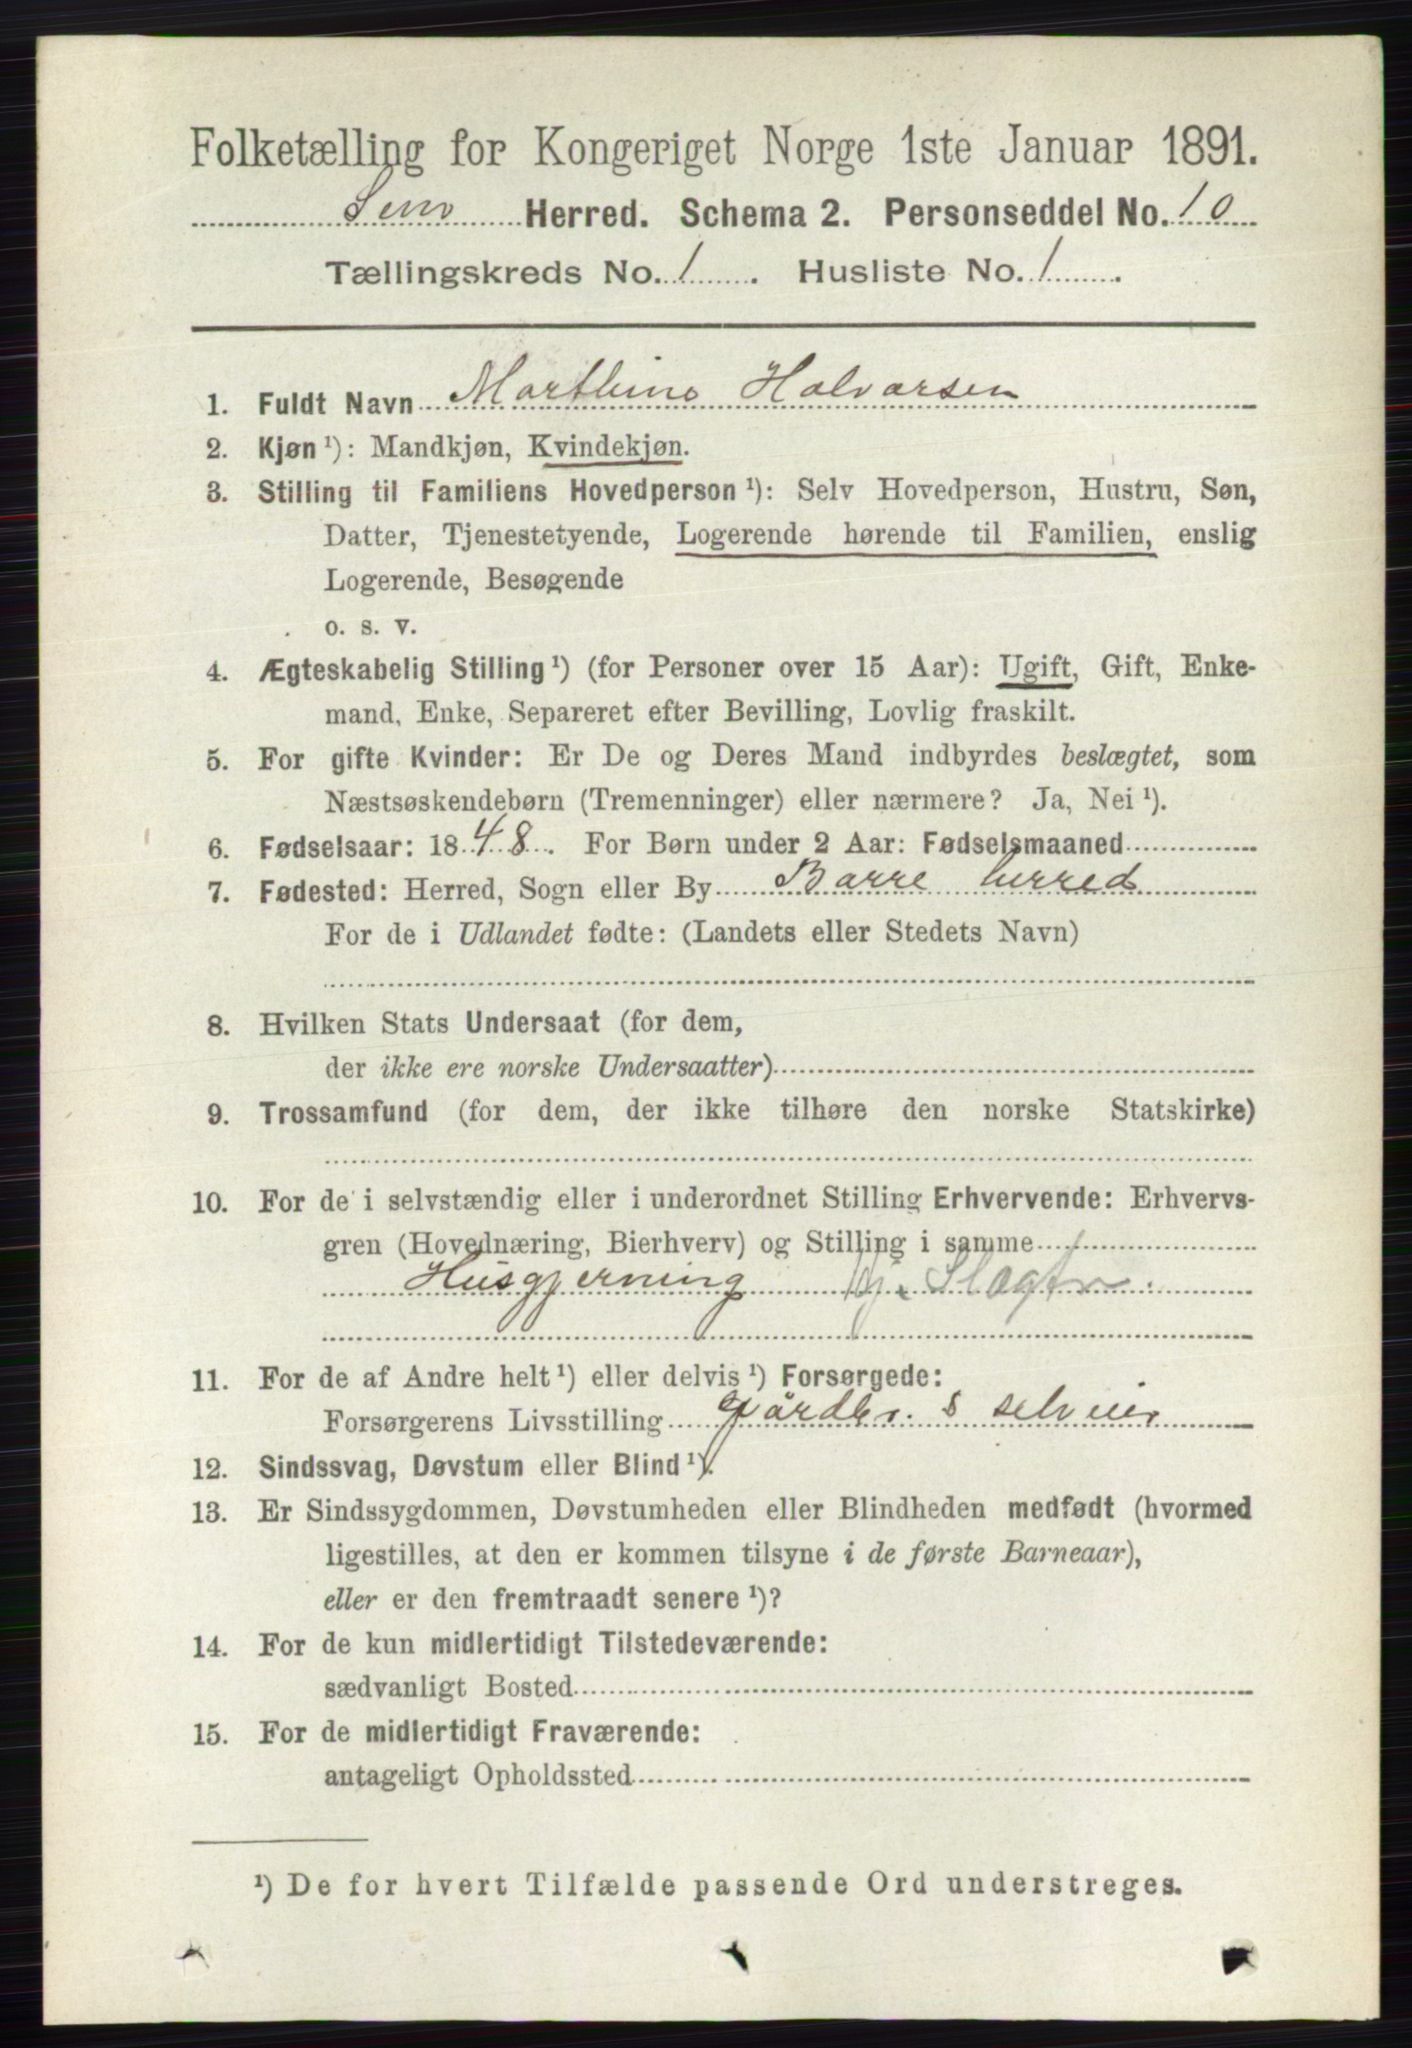 Folketælling for Kongeriget Norge 1ste Januar 1891.
Sem Herred. Schema 2. Personseddel No. 10
Tællingskreds No. 1. Husliste No. 1.
1. Fuldt Navn Marthine Halvorsen
2. Kjøn ¹): Mandkjøn, Kvindekjøn.
3. Stilling til Familiens Hovedperson ¹): Selv Hovedperson, Hustru, Søn,
Datter, Tjenestetyende, Logerende hørende til Familien, enslig
Logerende, Besøgende
o. s. v.
4. Ægteskabelig Stilling ¹) (for Personer over 15 Aar): Ugift, Gift, Enke-
mand, Enke, Separeret efter Bevilling, Lovlig fraskilt.
5. For gifte Kvinder: Er De og Deres Mand indbyrdes beslægtet, som
Næstsøskendebørn (Tremenninger) eller nærmere? Ja, Nei ¹).
6. Fødselsaar: 1848. For Børn under 2 Aar: Fødselsmaaned
7. Fødested: Herred, Sogn eller By Borre herred
For de i Udlandet fødte: (Landets eller Stedets Navn)
8. Hvilken Stats Undersaat (for dem,
der ikke ere norske Undersaatter)
9. Trossamfund (for dem, der ikke tilhøre den norske Statskirke)
10. For de i selvstændig eller i underordnet Stilling Erhvervende: Erhvervs-
gren (Hovednæring, Bierhverv) og Stilling i samme
Husgjerning hj. Slægtn.
11. For de af Andre helt ¹) eller delvis ¹) Forsørgede:
Forsørgerens Livsstilling gårdbr. s selveier
12. Sindssvag, Døvstum eller Blind ¹).
13. Er Sindssygdommen, Døvstumheden eller Blindheden medfødt (hvormed
ligestilles, at den er kommen tilsyne i de første Barneaar),
eller er den fremtraadt senere ¹)?
14. For de kun midlertidigt Tilstedeværende:
sædvanligt Bosted
15. For de midlertidigt Fraværende:
antageligt Opholdssted
¹) De for hvert Tilfælde passende Ord understreges.